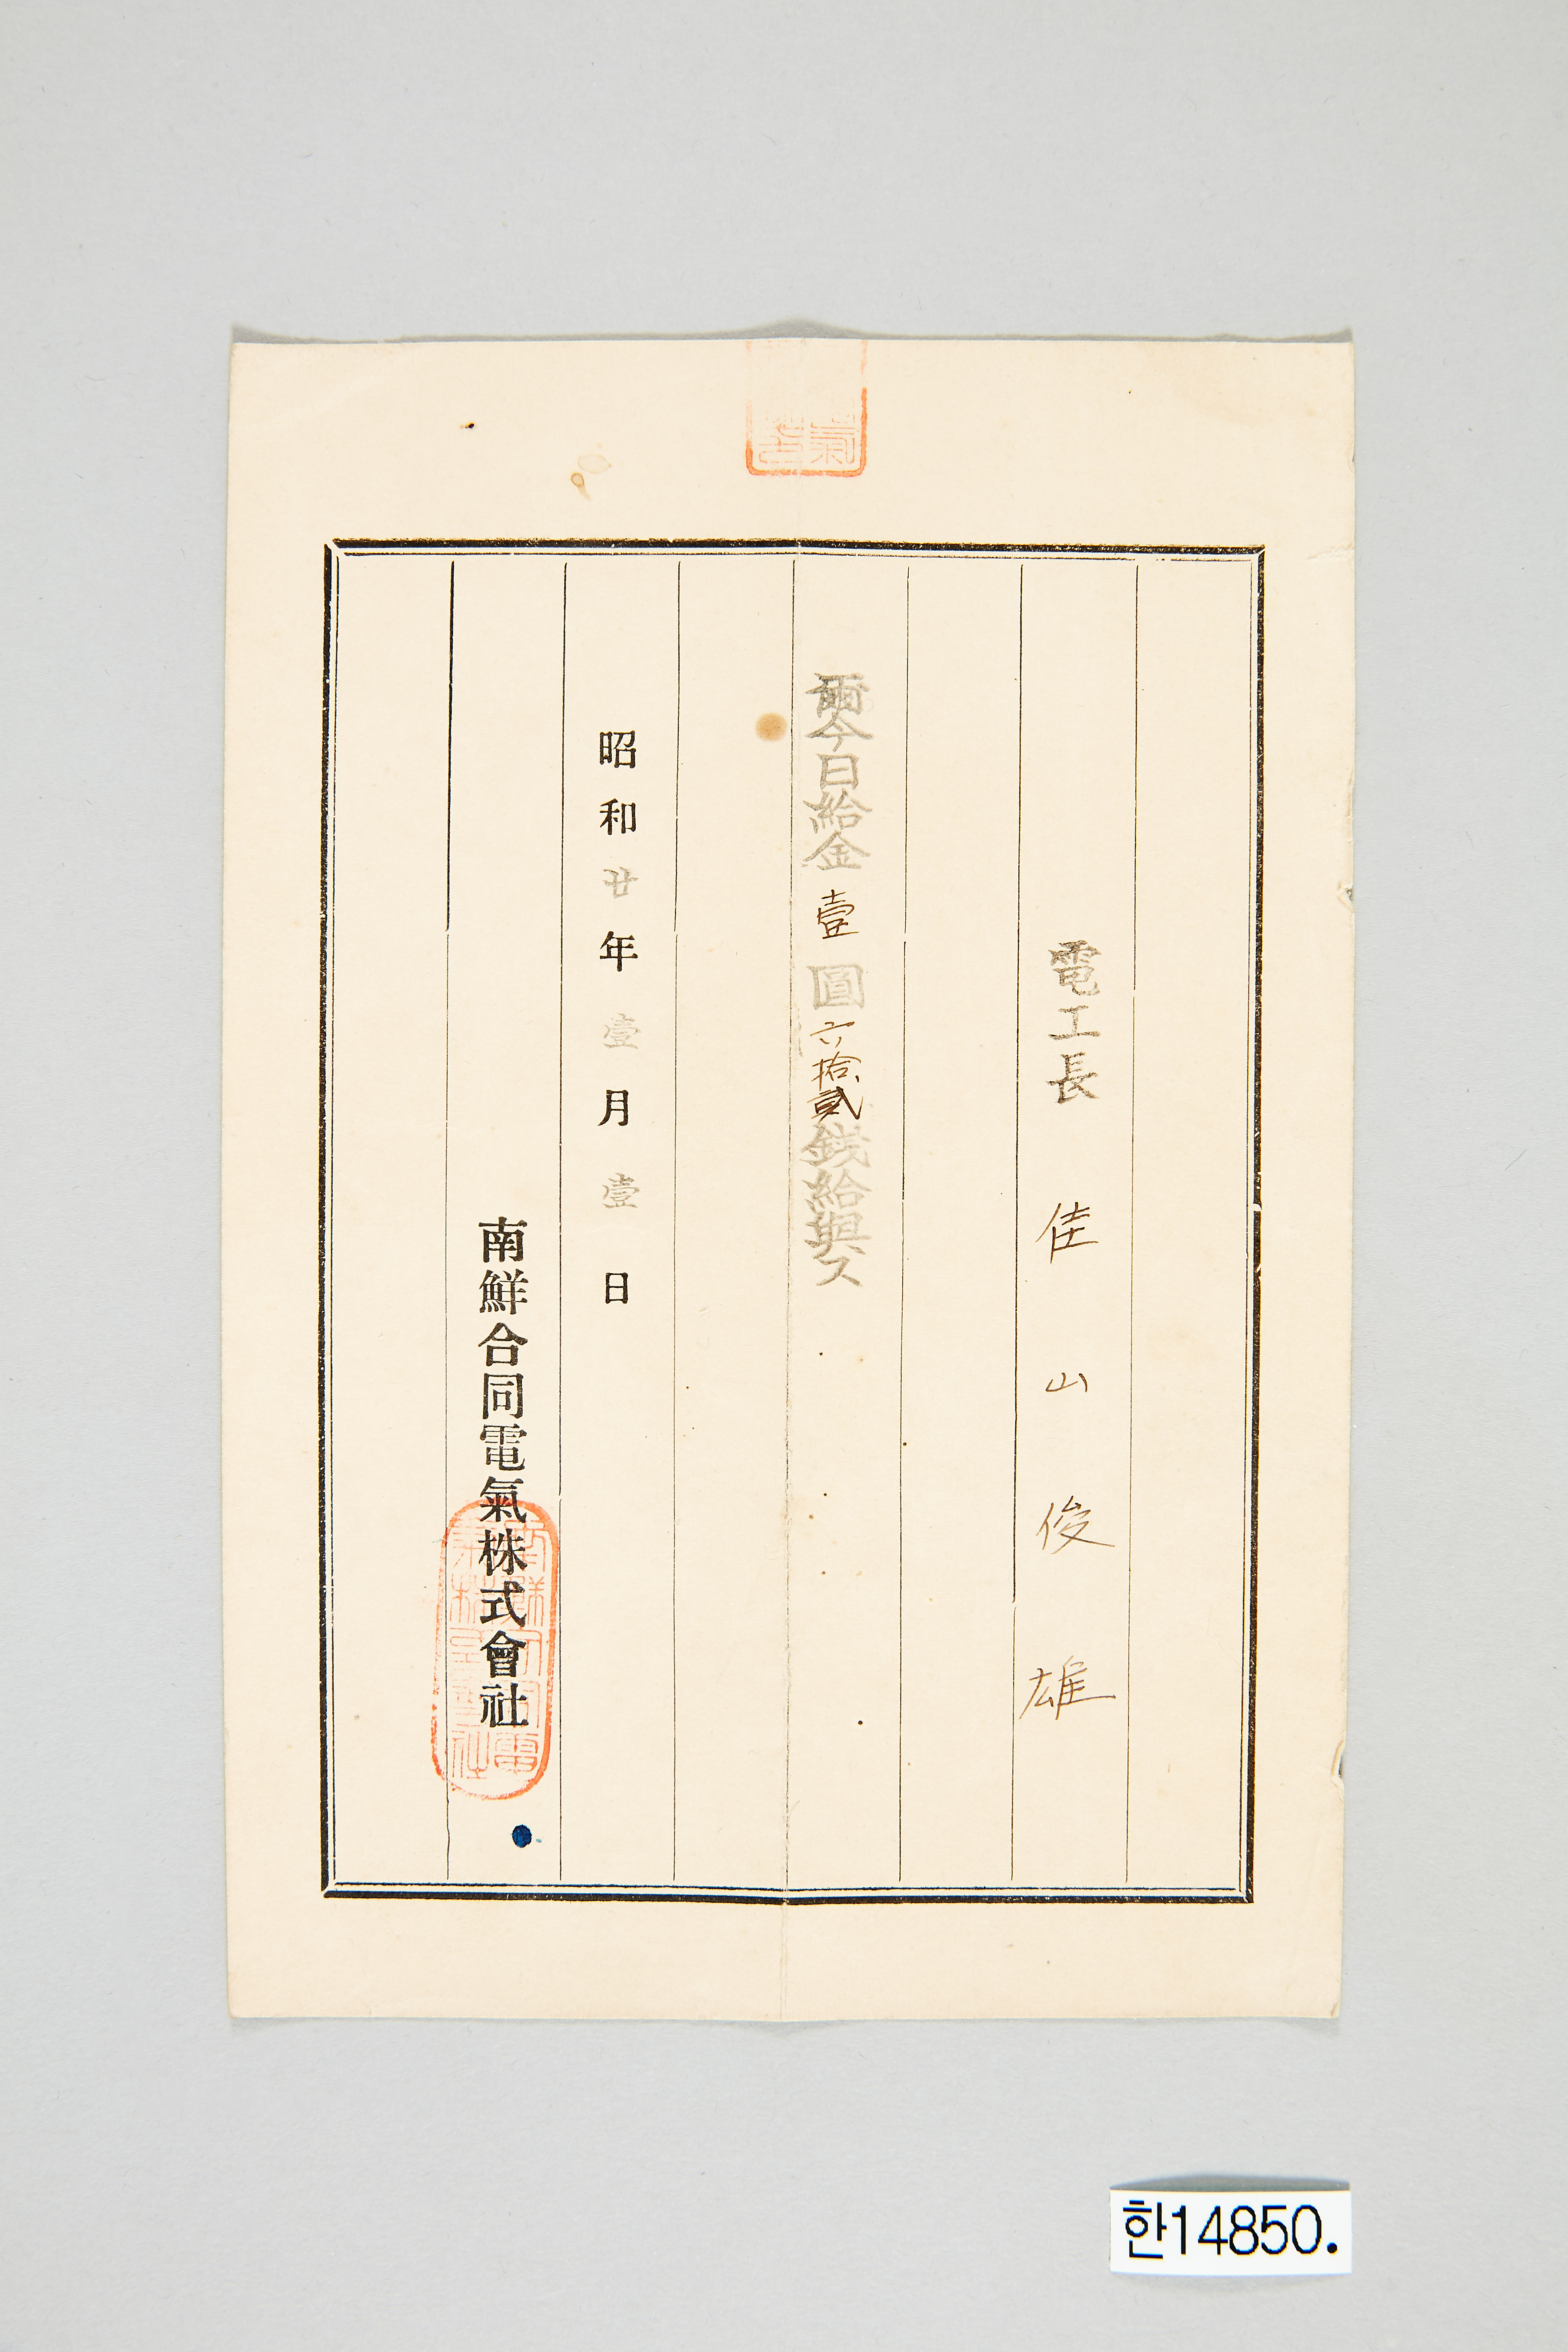 電工長 佳山俊雄
爾今日給金壹圓六拾貳錢給與ス
昭和廿年壹月壹日
南鮮合同電氣株式會社
한14850.